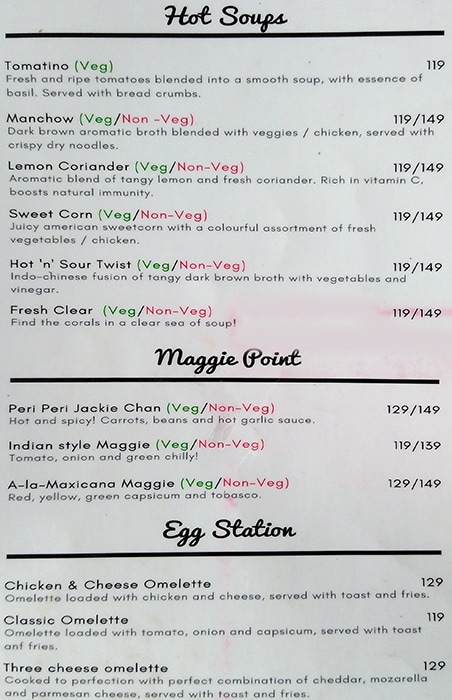 Hot Soups
Tomatino (Veg) 119
Fresh and ripe tomatoes blended into a smooth soup, with essence of
basil. Served with bread crumbs.
Manchow (Veg/Non -Veg) 119/149
Dark brown aromatic broth blended with veggies / chicken, served with
crispy dry noodles.
Lemon Coriander (Veg/Non-Veg) 119/149
Aromatic blend of tangy lemon and fresh coriander. Rich in vitamin C,
boosts natural immunity.
Sweet Corn (Veg/Non-Veg) 119/149
Juicy american sweetcorn with a colourful assortment of fresh
vegetables / chicken.
Hot 'n' Sour Twist (Veg/Non-Veg) 119/149
Indo-chinese fusion of tangy dark brown broth with vegetables and
vinegar.
Fresh Clear (Veg/Non-Veg) 119/149
Find the corals in a clear sea of soup!
Maggie Point
Peri Peri Jackie Chan (Veg/Non-Veg) 129/149
Hot and spicy! Carrots, beans and hot garlic sauce.
Indian style Maggie (Veg/Non-Veg) 119/139
Tomato, onion and green chilly!
A-la-Maxicana Maggie (Veg/Non-Veg) 129/149
Red, yellow, green capsicum and tobasco.
Egg Station
Chicken & Cheese Omelette 129
Omelette loaded with chicken and cheese, served with toast and fries.
Classic Omelette 119
Omelette loaded with tomato, onion and capsicum, served with toast
anf fries.
Three cheese omelette 129
Cooked to perfection with perfect combination of cheddar, mozarella
and parmesan cheese, served with toast and fries.